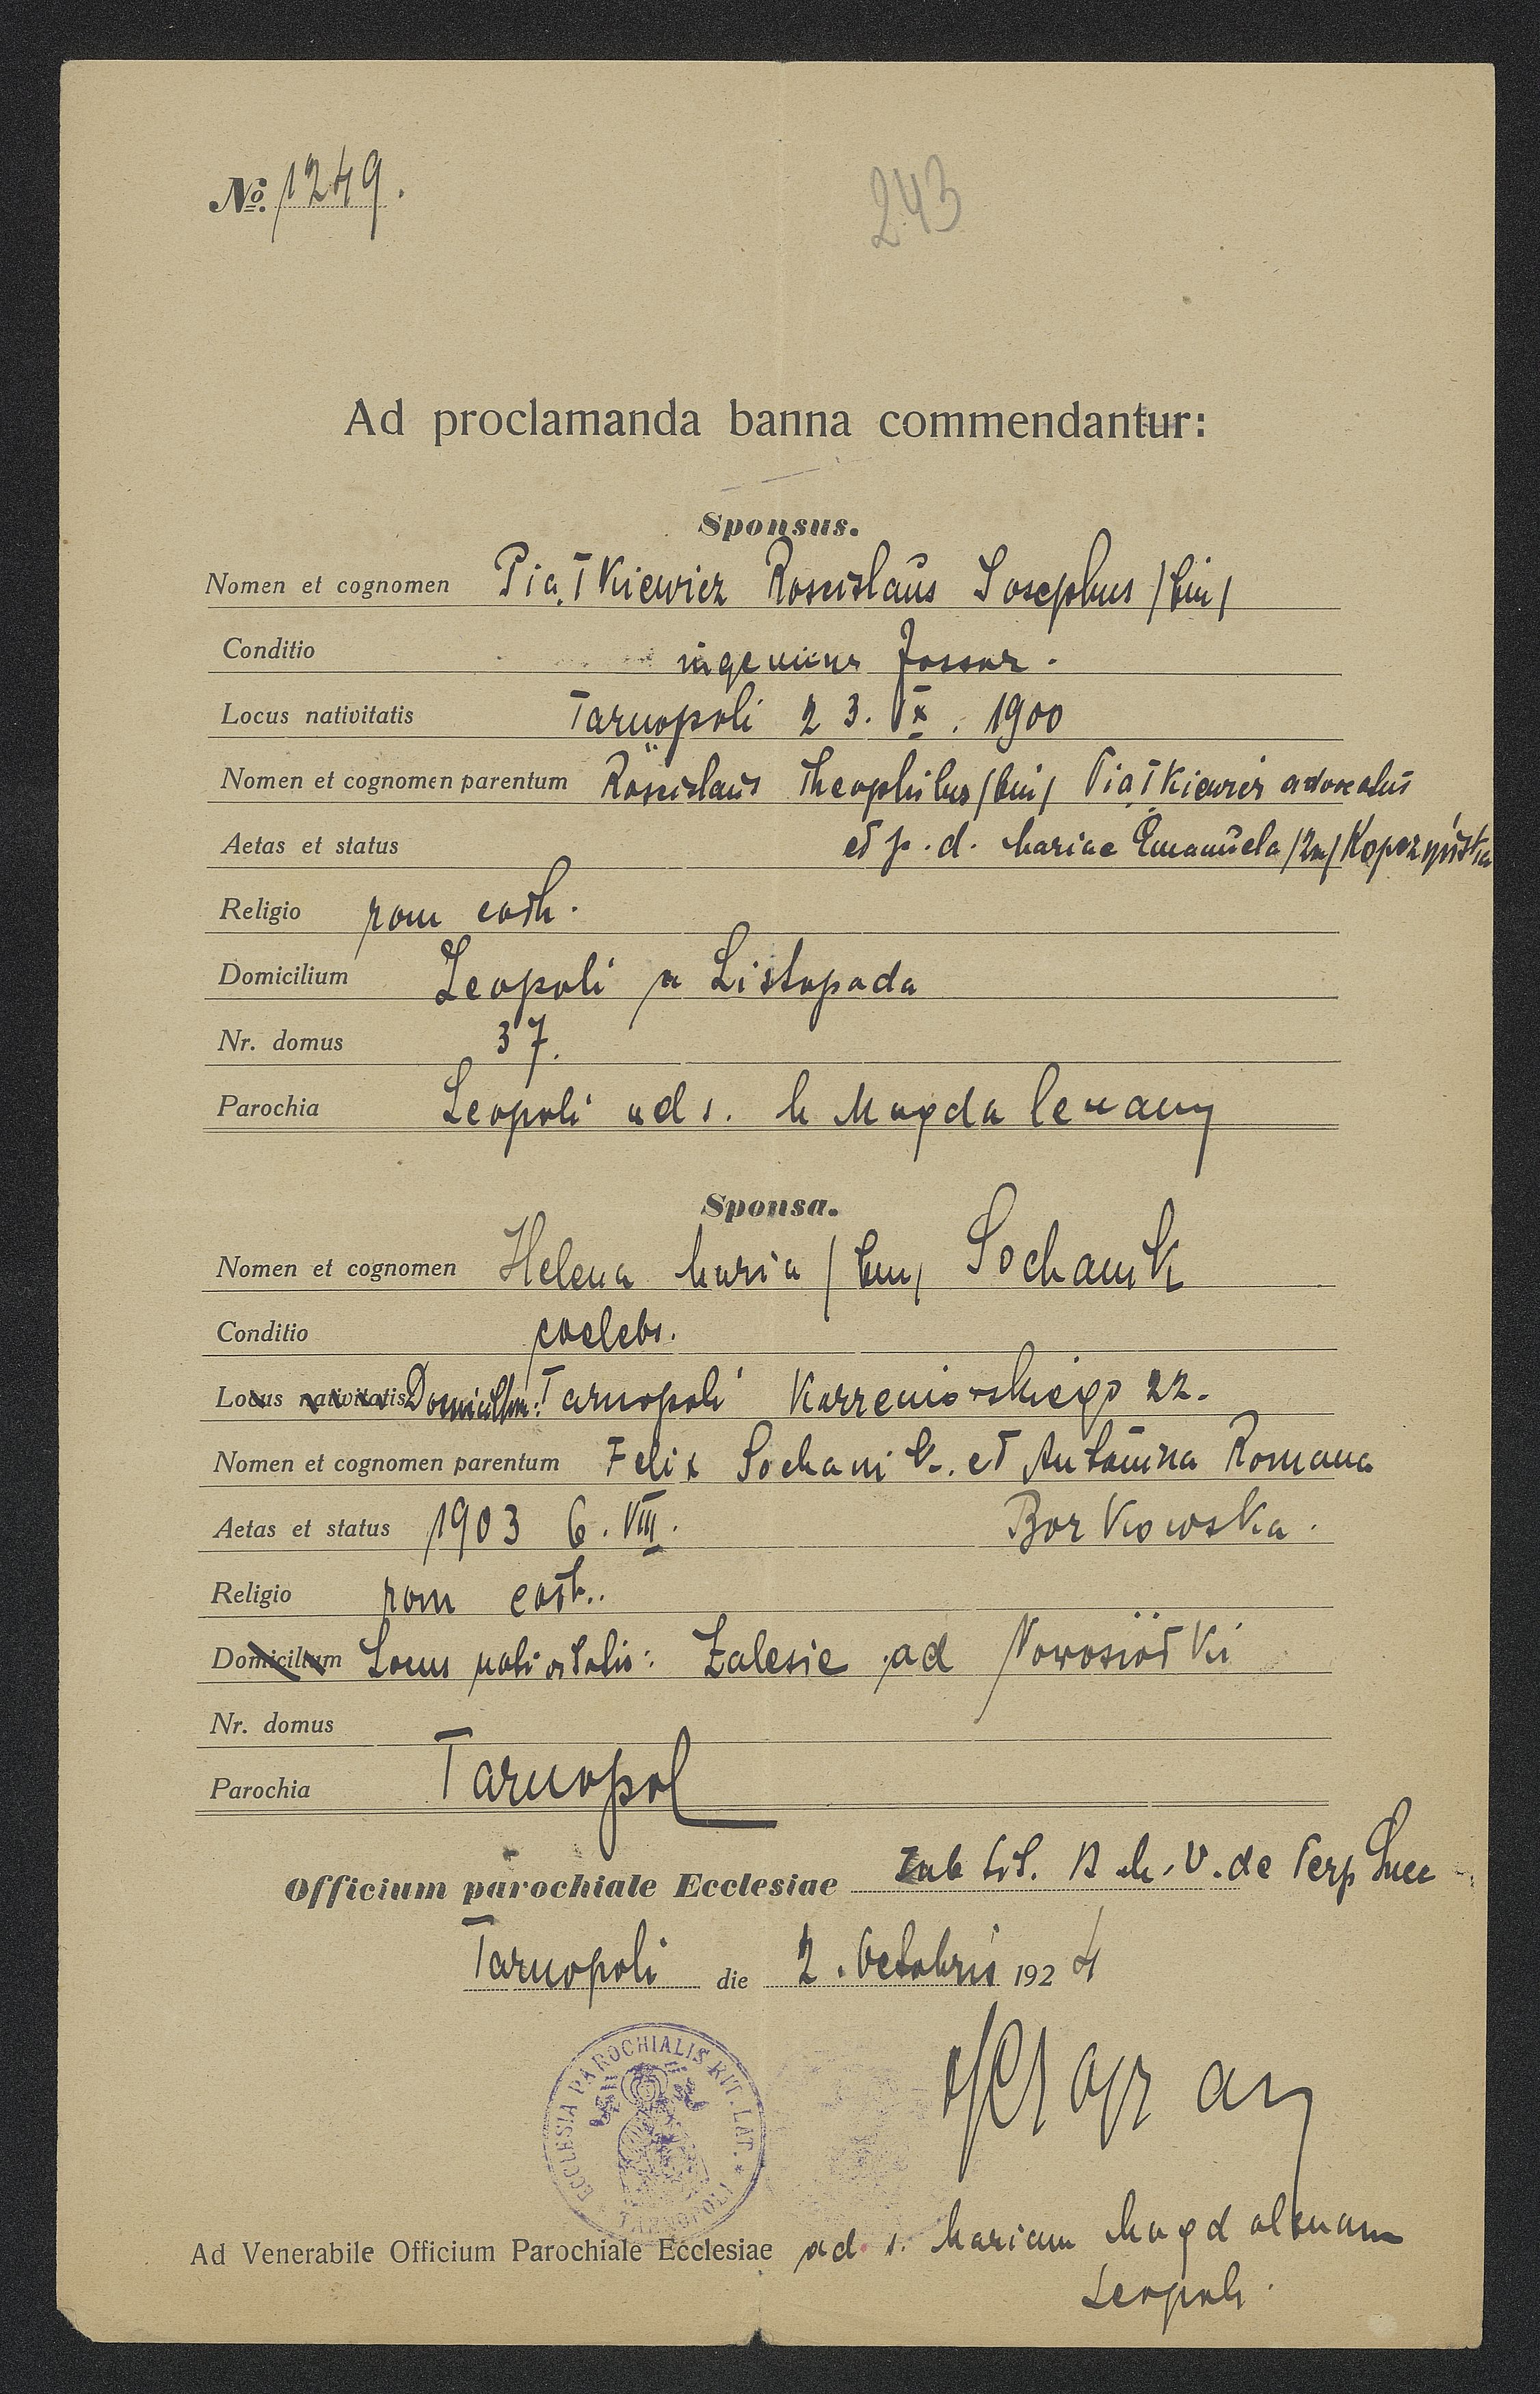 №. 1249.
243
Ad proclamanda banna commendantur:
Sponsus.
Nomen et cognomen Piątkiewicz Roscislaus Josephus /bin/
Conditio ingenieur
Locus nativitatis Tarnopoli 23. IX. 1900
Nomen et cognomen parentum Roscislaus Theophilus /bin/ Piątkiewicz advocatus
Aetas et status et p. d. Mariae Emanuela /2m/
Religio rom cath.
Domicilium Leopoli Listopada
Nr. domus 37.
Parochia Leopoli ad s. M Magdalenam
Sponsa.
Nomen et cognomen Helena Maria /bin/ Sochanik
Conditio coelebs.
Locus nativitatis Domicilium: Tarnopoli Korzeniowskiego 22.
Nomen et cognomen parentum Felix Sochanik. et Antonina Romana
Aetas et status 1903 6. VIII. Borkowska.
Religio rom cath.
Domicilium Locus nativitatis: Zalesie ad Nowosiółki
Nr. domus
Parochia Tarnopol
Officium parochiale Ecclesiae sub tit. B M. V. de Perp Succ
Tarnopoli die 2. Octobris 1924
ECCLESIA PAROCHIALIS RIT. LAT. * TARNOPOLI
Ad Venerabile Officium Parochiale Ecclesiae ad s. Mariam Magdalenam
Leopoli.